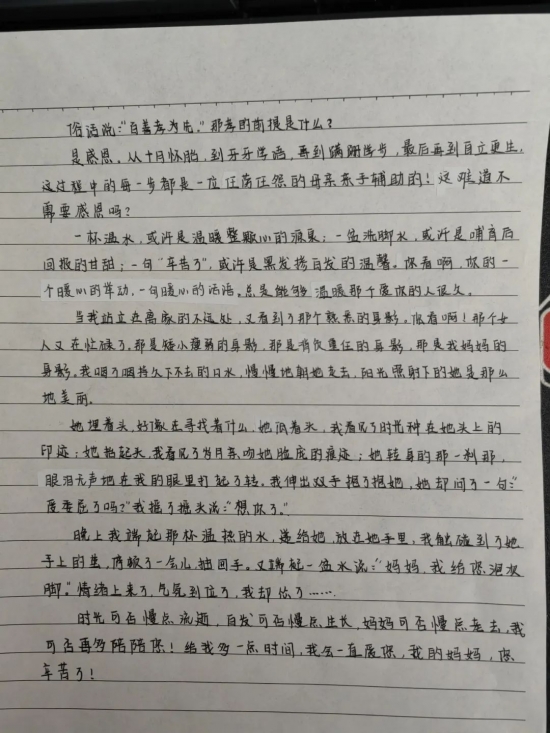 俗话说:"百善孝为先,"那孝的前提是什么?
是感恩。从十月怀胎,到牙牙学语,再到蹒跚学步,最后再到自立更生,
这过程中的每一步都是一位任劳任怨的母亲亲手辅助的!这难道不
需要感恩吗?
一杯温水,或许是温暖整颗心的源泉;一盆洗脚水,或许是哺育后
回报的甘甜;一句"辛苦了",或许是黑发掺白发的温馨。你看啊,你的一
个暖心的举动,一句暖心的话语。总是能够温暖那个爱你的人很久。
当我站立在离家的不远处,又看到了那个熟悉的身影。你看啊!那个女
人又在忙碌了。那是矮小瘦弱的身影,那是背负重任的身影,那是我妈妈的
身影。我咽了咽持久下不去的口水,慢慢地朝她走去,阳光照射下的她是那么
地美丽。
她埋着头,好像在寻找着什么,她低着头,我看见了时光种在她头上的
印迹;她抬起头,我看见了岁月亲吻她脸庞的痕迹;她转身的那一刹那,
眼泪无声地在我的眼里打起了转。我伸出双手抱了抱她,她却问了一句:"
受委屈了吗?"我摇了摇头说:"想你了。"
晚上我端起那杯温热的水,递给她,放在她手里,我触碰到了她
手上的茧,停顿了一会儿,抽回手。又端起一盆水说:"妈妈,我给您泡次
脚。"情绪上来了,气氛到位了,我却怂了……
时光可否慢点流逝,白发可否慢点生长,妈妈可否慢点老去,我
可否再多陪陪您!给我多一点时间,我会一直爱您,我的妈妈,您
辛苦了!